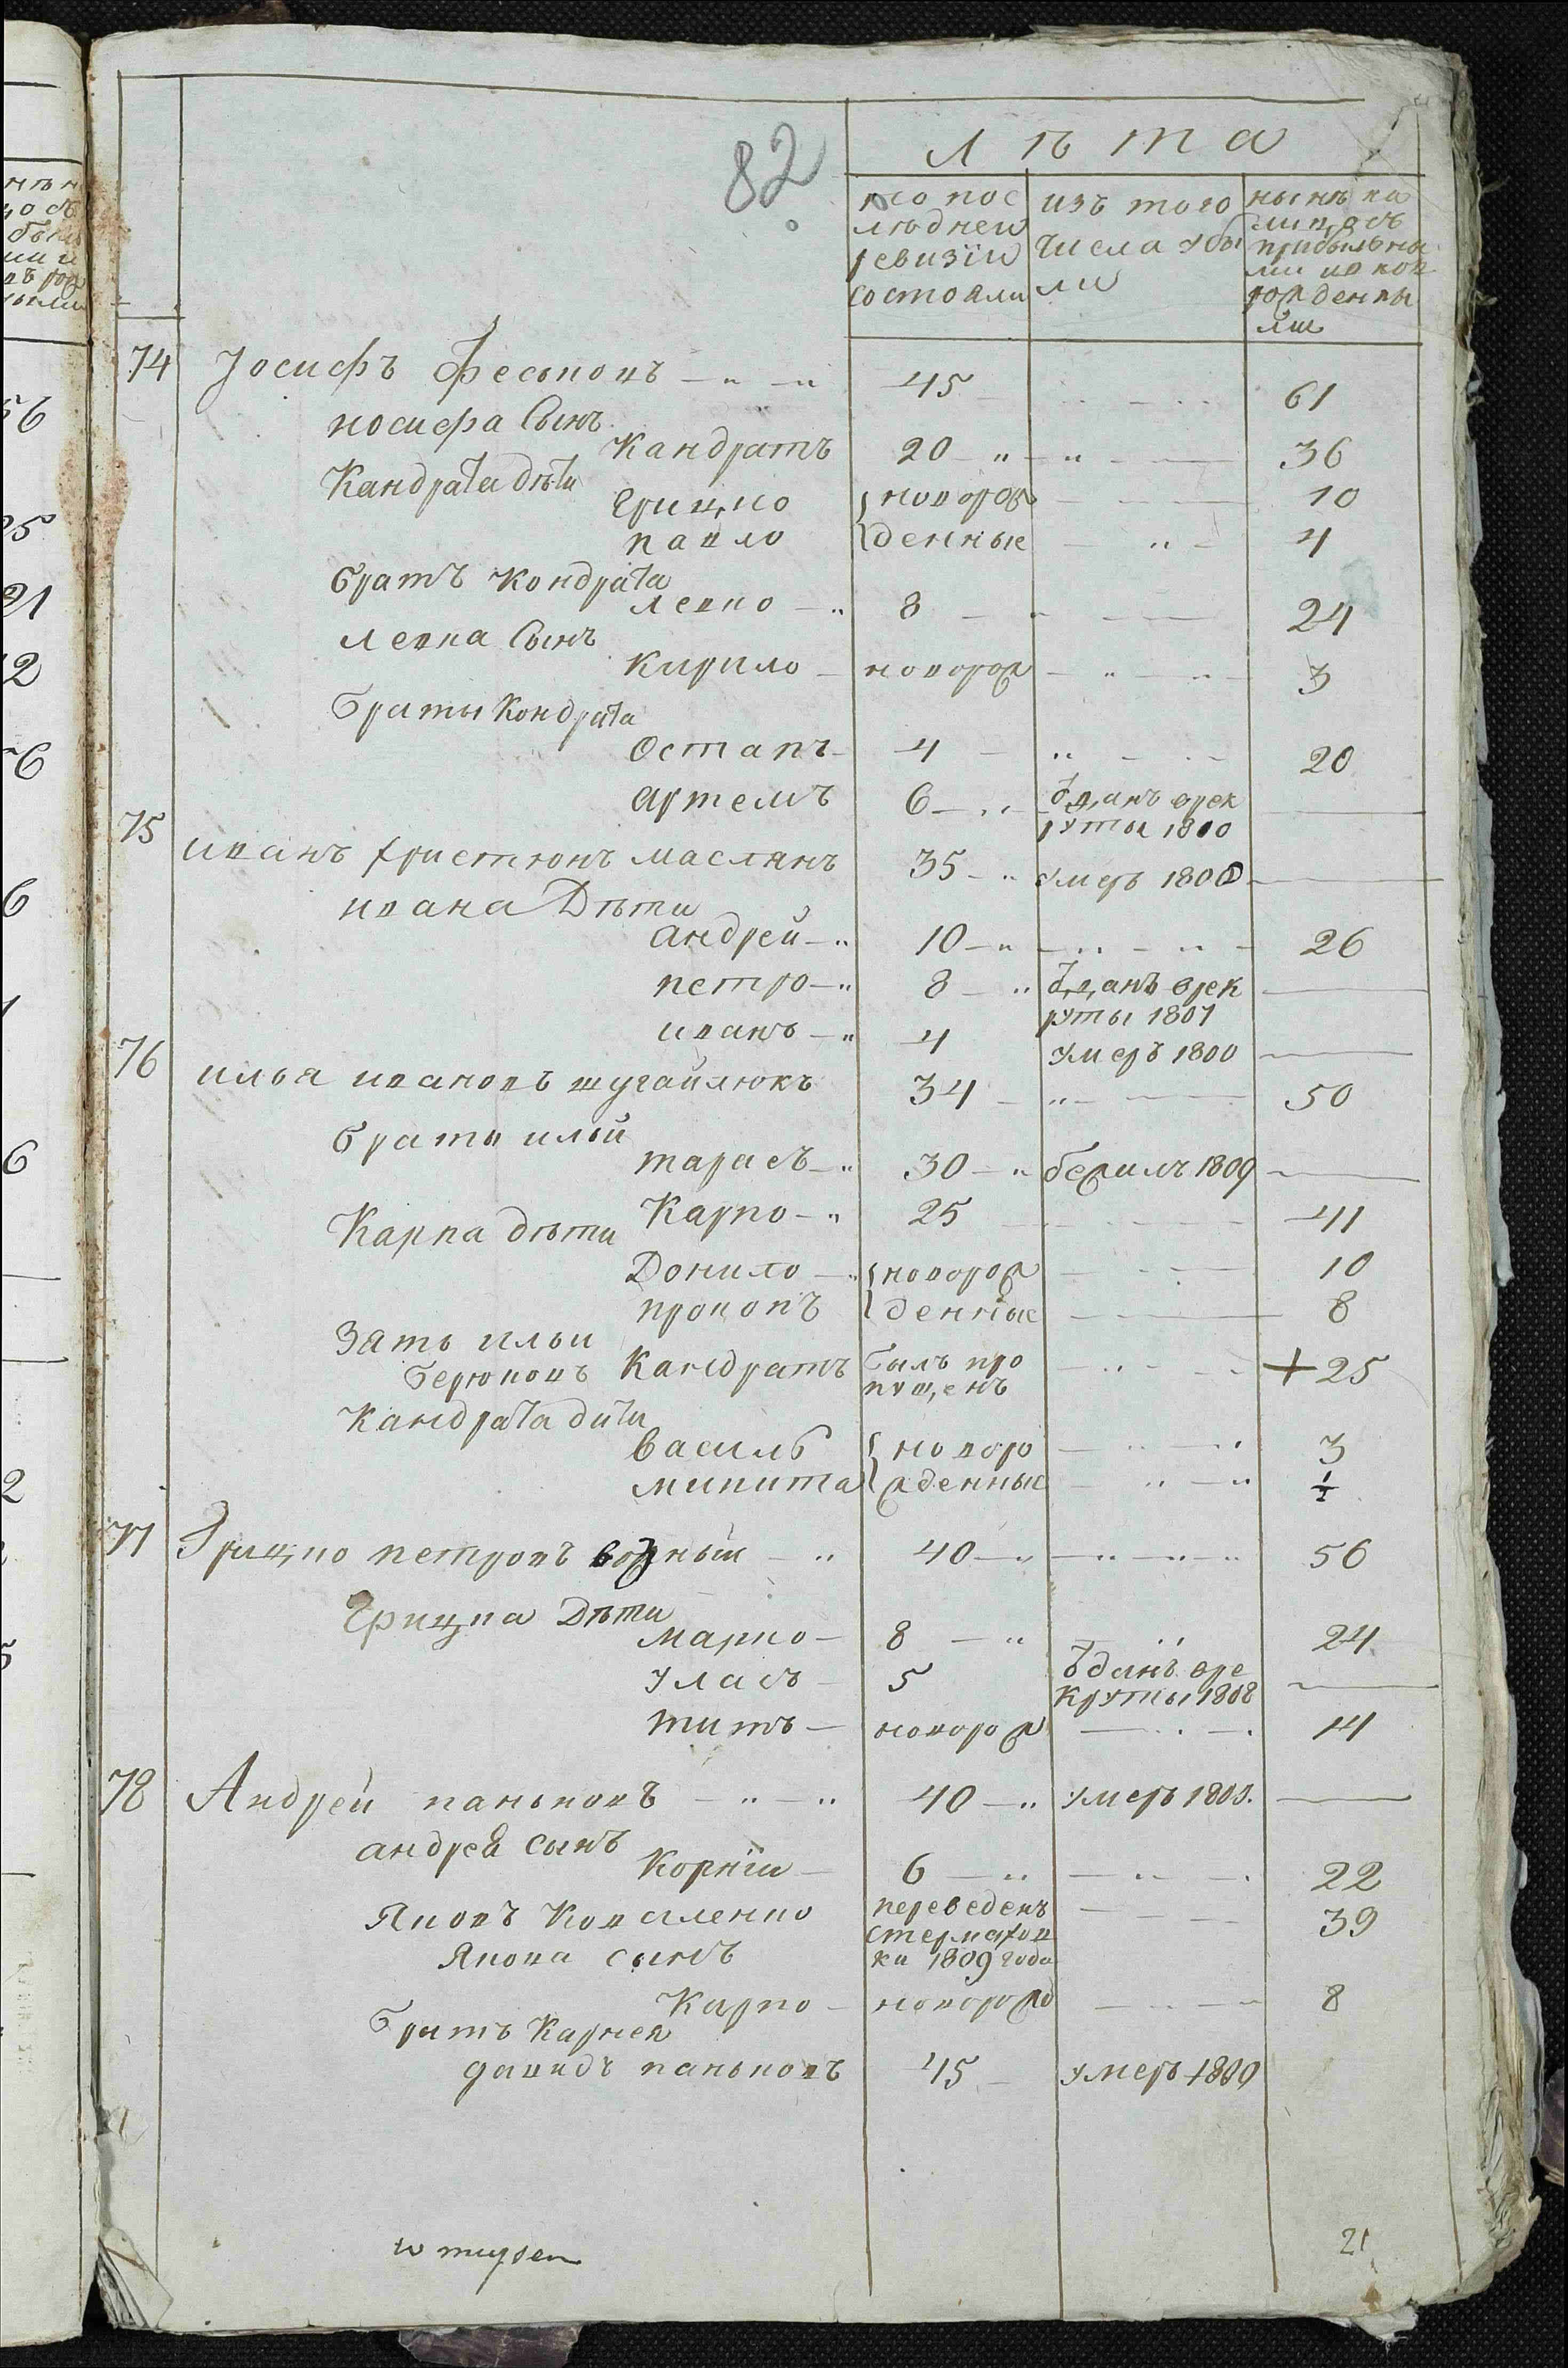 82
Лѣта
по пос
лѣдней
ревизiи
состояли
изъ того
числа убы
ли
нынѣ на
лицо съ
прибылы
ми и новорожденны
ми
74 Иосифъ Феськовъ 45 61
иосифа Сынъ
Кандратъ 20 36
Кандрата дѣти
Грицко новорож 10
павло денные 4
братъ Кондрата
левко 8 24
левка Сынъ
Кирило новорож 3
браты Кондрата
Остапъ 4 20
артемъ 6 ѿданъ врек
руты 1800
75 иванъ христюнъ маслянъ 35 умеръ 1800
ивана Дѣти
андрей 10 26
петро 8 ѿданъ врек
руты 1807
иванъ 4 умеръ 1800
76 илья ивановъ шугайлюкъ 34 50
браты ильи
тарасъ 30 бежилъ 1809
Карпо 25 41
Карпа дѣти
Донило новорож 10
прокопъ денные 8
Зять ильи
берюковъ Кандратъ былъ про +25
пущенъ
Кандрата дити
василь новоро 3
микита жденные ½
77 Грицко петровъ возный 40 56
Грицка Дѣти
марко 8 24
уласъ 5 ѿданъ вре
круты 1808
титъ новорож 14
78 Андрей паньковъ 40 умеръ 1800.
андрея сынъ
Корнiй 6 22
Яковъ Коваленко переведенъ 39
стермахов
ки 1809 года
Якова сынъ
Карпо новорожд 8
братъ Карнея
давидъ паньковъ 45 умеръ 1809
21